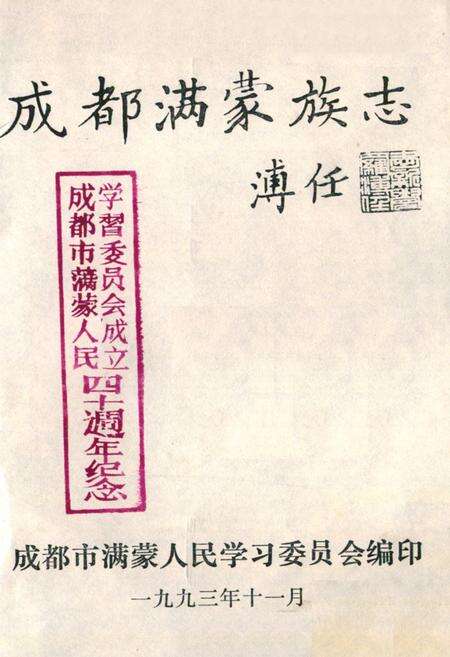 成都满蒙族志
溥任
成都市满蒙人民
学習委员会成立
四十週年纪念
成都市满蒙人民学习委员会编印
一九九三年十一月